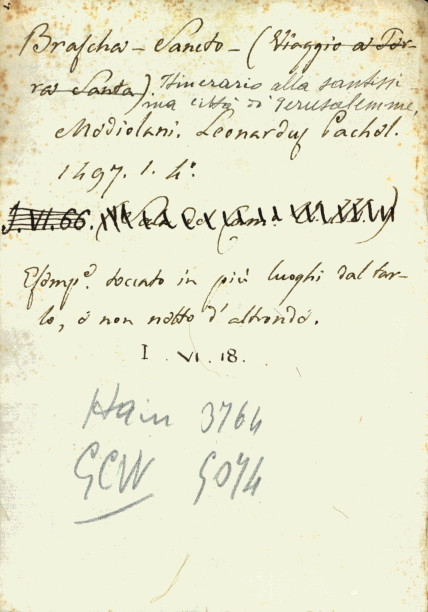 Brascha - Sancto - (Viaggio a Ter-
ra Santa). Itinerario alla santissi
ma città di Jerusalemme.
Mediolani. Leonardus Pachel.
1497. 1. 4°.
J. VI. 66.
Esemp.e toccato in più luoghi dal tar-
lo, e non netto d'altronde.
I . VI . 18.
Hain 3764
GCW 5074